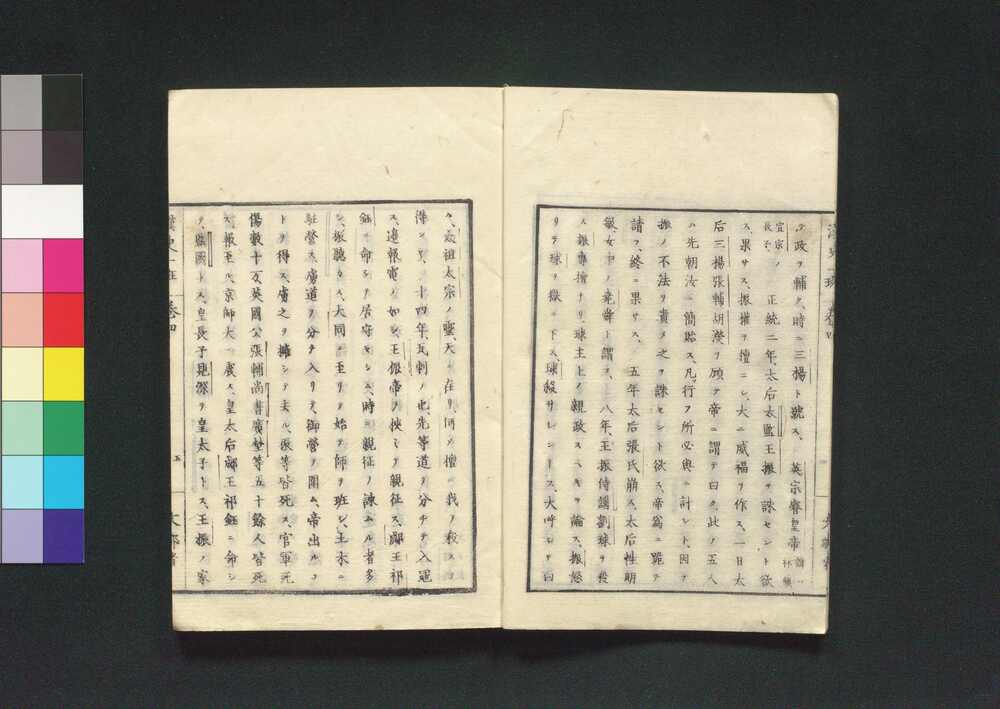 テ政ヲ輔ク、時ニ三楊ト號ス、 英宗睿皇帝 諱ハ祁鎮
宣宗ノ長子、 正統二年、太后太監王振ヲ誅セント欲
ス、果サス、振權ヲ擅ニシ、大ニ威福ヲ作ス、一日太
后三楊張輔胡濙ヲ顧テ帝ニ謂テ曰ク、此ノ五人
ハ先朝汝ニ簡貽ス、凡行フ所必與ニ計レト、因テ
振ノ不法ヲ責メ之ヲ誅セント欲ス、帝爲ニ跪テ
請フ、終ニ果サス、 五年太后張氏崩ス、太后性明
敏、女中ノ堯舜ト謂フ、 八年、王振侍講劉球ヲ殺
ス、振專擅ナリ球主上ノ親政スヘキヲ論ス、振怒
リテ球ヲ獄ニ下ス、球殺サレントス、大呼シテ曰
ク、太祖太宗ノ靈、天ニ在リ、何ソ擅ニ我ヲ殺スヿ
得ント、 十四年、瓦剌ノ也先等道ヲ分チテ入冦
ス、邊報電ノ如シ、王振帝ヲ挾ミテ親征ス、郕王祁
鈺ニ命シテ居守セシム、時ニ親征ヲ諫ムル者多
シ、振聽カス、大同ニ至リテ始テ師ヲ班シ、土木ニ
駐營ス、虜道ヲ分チ入リテ、御營ヲ圍ム、帝出ルヿ
ヲ得ス、虜之ヲ擁シテ去ル、振等皆死ス、官軍死
傷數十万、英國公張輔尚書鄺埜等五十餘人皆死
ス、報至ル、京師大ニ震ス、皇太后郕王祁鈺ニ命シ
テ、監國トス、皇長子見深ヲ皇太子トス、王振ノ家
漢史一班 卷四 五